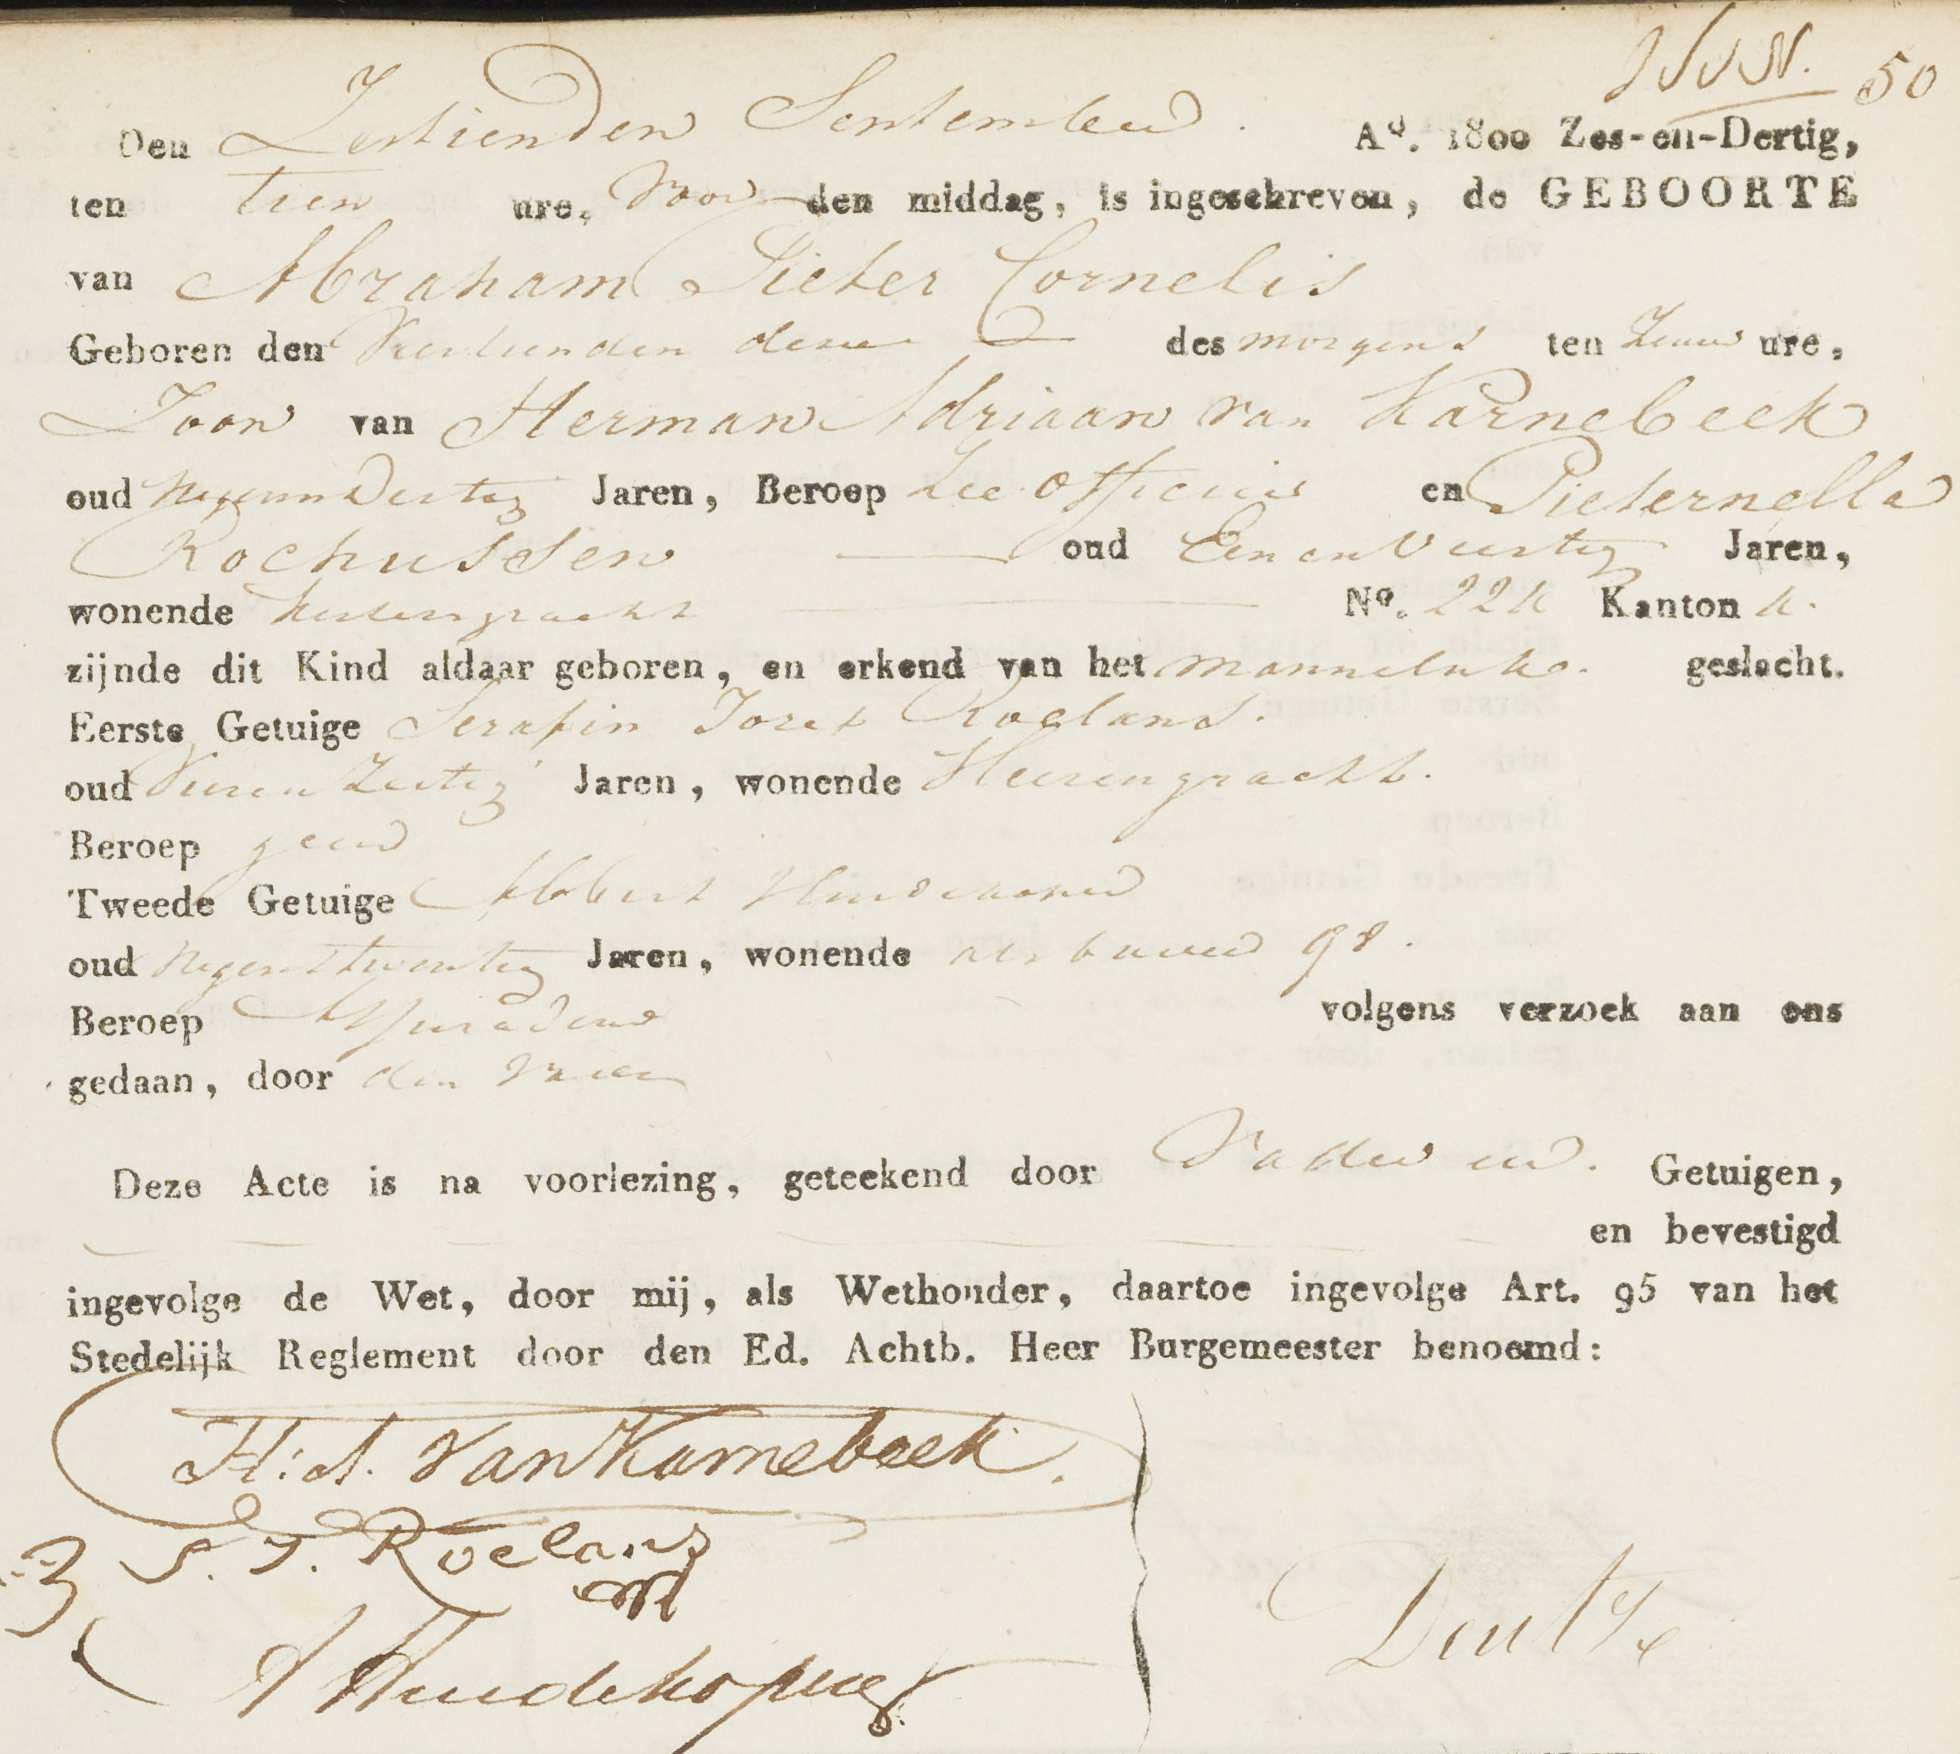 50
Den Zestienden September. Ao. 1800 Zes-en-Dertig,
ten tien ure, voor den middag, is ingeschreven, de GEBOORTE
van Abraham Pieter Cornelis
Geboren den Veertienden dezer des morgens ten zeven ure,
Zoon van Herman Adriaan van Karnebeek
oud negenendertig Jaren, Beroep Zee Officier en Pieternella
Rochussen oud Een en Veertig Jaren,
wonende Keizersgracht No. 224 Kanton
zijnde dit Kind aldaar geboren, en erkend van het mannelijke geslacht.
Eerste Getuige Serafin Josef Roelans.
oud Vieren Zestig Jaren, wonende Heerengracht.
Beroep geen
Tweede Getuige Albert
oud negentwentig Jaren, wonende 98.
Beroep volgens verzoek aan ons
gedaan, door den Vader
Deze Acte is na voorlezing, geteekend door Vader en Getuigen,
en bevestigd
ingevolge de Wet, door mij, als Wethouder, daartoe ingevolge Art. 95 van het
Stedelijk Reglement door den Ed. Achtb. Heer Burgemeester benoemd:
H: A. Van Karnebeek.
S. J. Roelans
Deutz